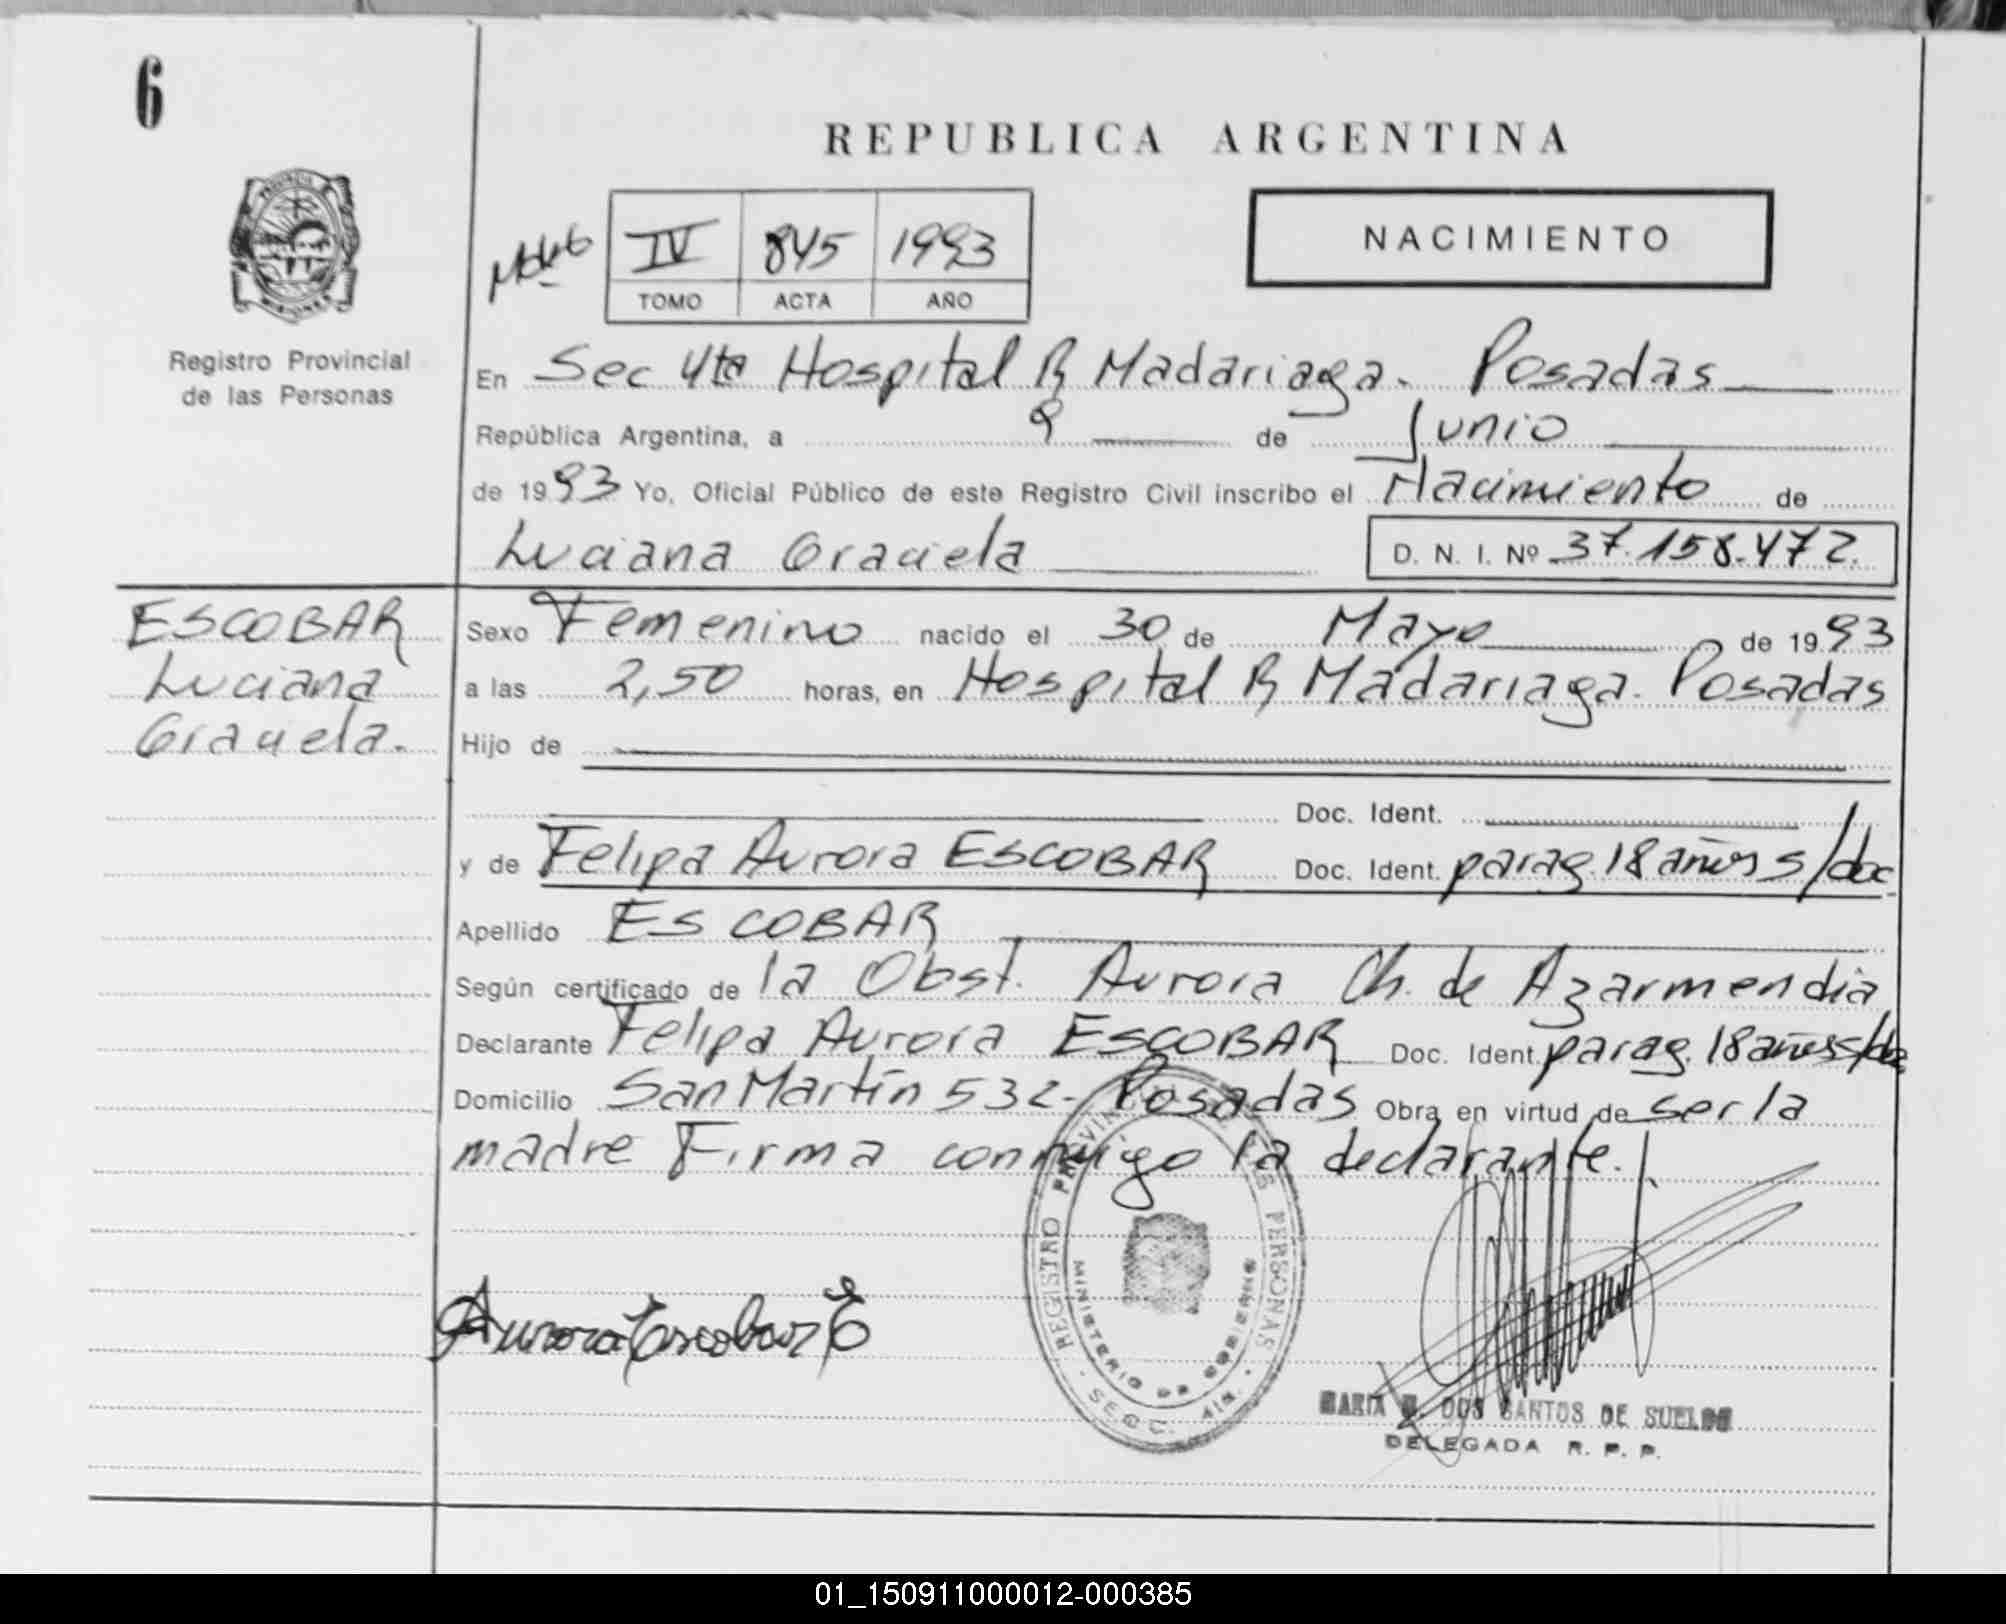 6
REPUBLICA ARGENTINA
IV 845 1993
TOMO ACTA AÑO
NACIMIENTO
Registro Provincial
de las Personas
En Sec 4ta Hospital R Madariaga. Posadas
República Argentina, a 9 de Junio
de 1993 Yo, Oficial Público de este Registro Civil inscribo el Nacimiento de
Luciana Graciela D. N. I. Nº 37.158.472.
ESCOBAR
Luciana
Graciela.
Sexo Femenino nacido el 30 de Mayo de 1993
a las 2,50 horas, en Hospital R Madariaga. Posadas
Hijo de
Doc. Ident.
y de Felipa Aurora ESCOBAR Doc. Ident. parag. 18 años s/doc
Apellido ESCOBAR
Según certificado de la Obst. Aurora Ch. de Azarmendia
Declarante Felipa Aurora ESCOBAR Doc. Ident. parag. 18 años s/doc
Domicilio San Martín 532- Posadas Obra en virtud de ser la
madre Firma conmigo la declarante.
REGISTRO PROVINCIAL DE LAS PERSONAS
MINISTERIO DE GOBIERNO
Aurora Escobar E
DOS SANTOS DE SUELDO
DELEGADA R. P. P.
01_150911000012-000385